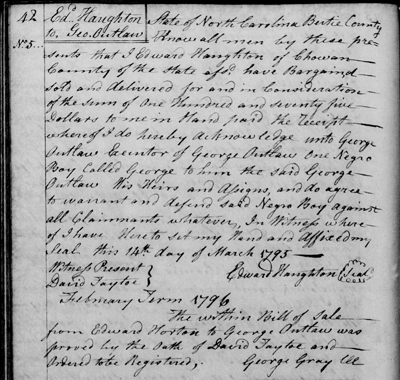 42
Edd. Haughton
to, Geo. Outlaw
No. 5...
State of North Carolina Bertie County
Know all men by these pre-
sents that I Edward Haughton of Chowan
County of the State afsd. have Bargaind
sold and delivered for and in Consideration
of the Sum of One Hundred and seventy five
Dollars to me in Hand paid the Receipt
whereof I do hereby acknowledge unto George
Outlaw Executor of George Outlaw One Negro
Boy Called George to him the said George
Outlaw His Heirs and Assigns, and do agree
to warrant and defend said Negro Boy against
all Claimmants whatever, In Witness where
of I have Hereto set my Hand and Affixed my
Seal this 14th day of March 1795
Witness Present } Edward Haughton (Seal)
David Taytoe }
February Term 1796
The within Bill of Sale
from Edward Horton to George Outlaw was
proved by the Oath of David Taytoe and
Ordered to be Registered,
George Gray Clk